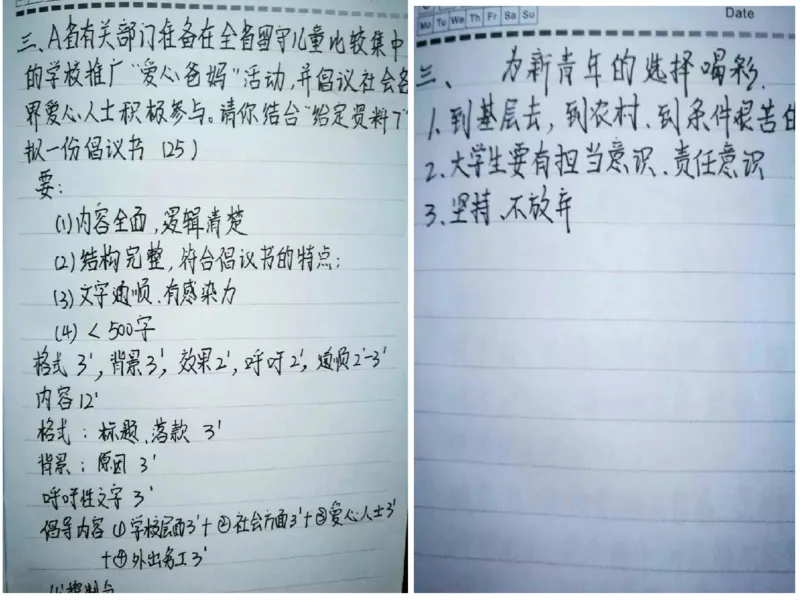 三、A省有关部门准备在全省留守儿童比较集中
的学校推广“爱心爸妈”活动,并倡议社会各
界爱心人士积极参与。请你结合“给定资料7”
拟一份倡议书 (25)
要:
(1)内容全面,逻辑清楚
(2)结构完整,符合倡议书的特点;
(3)文字通顺、有感染力
(4)<500字
格式 3',背景3',效果2',呼吁2',通顺2'-3'
内容12'
格式:标题、落款 3'
背景:原因 3'
呼吁性文字 3'
倡导内容 (1)学校层面3'+②社会方面3'+③爱心人士3'
+④外出务工3'
Mo Tu We Th Fr Sa Su
Date
三、 为新青年的选择喝彩.
1、到基层去,到农村、到条件艰苦的
2、大学生要有担当意识、责任意识
3、坚持、不放弃